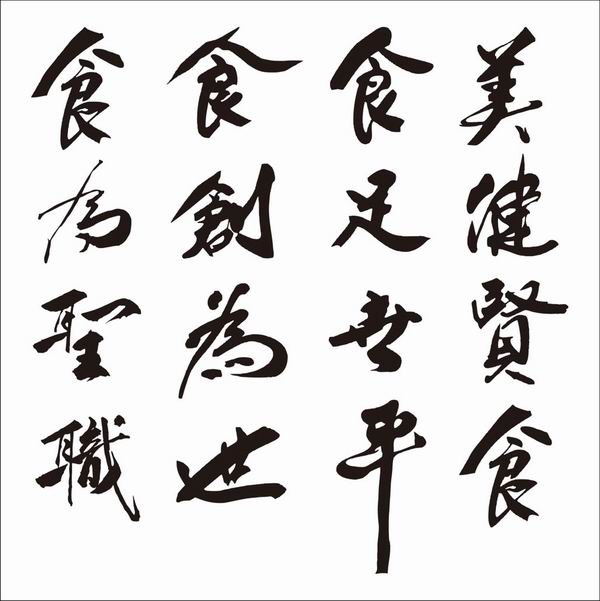 美健賢食
食足世平
食創為世
食為聖職